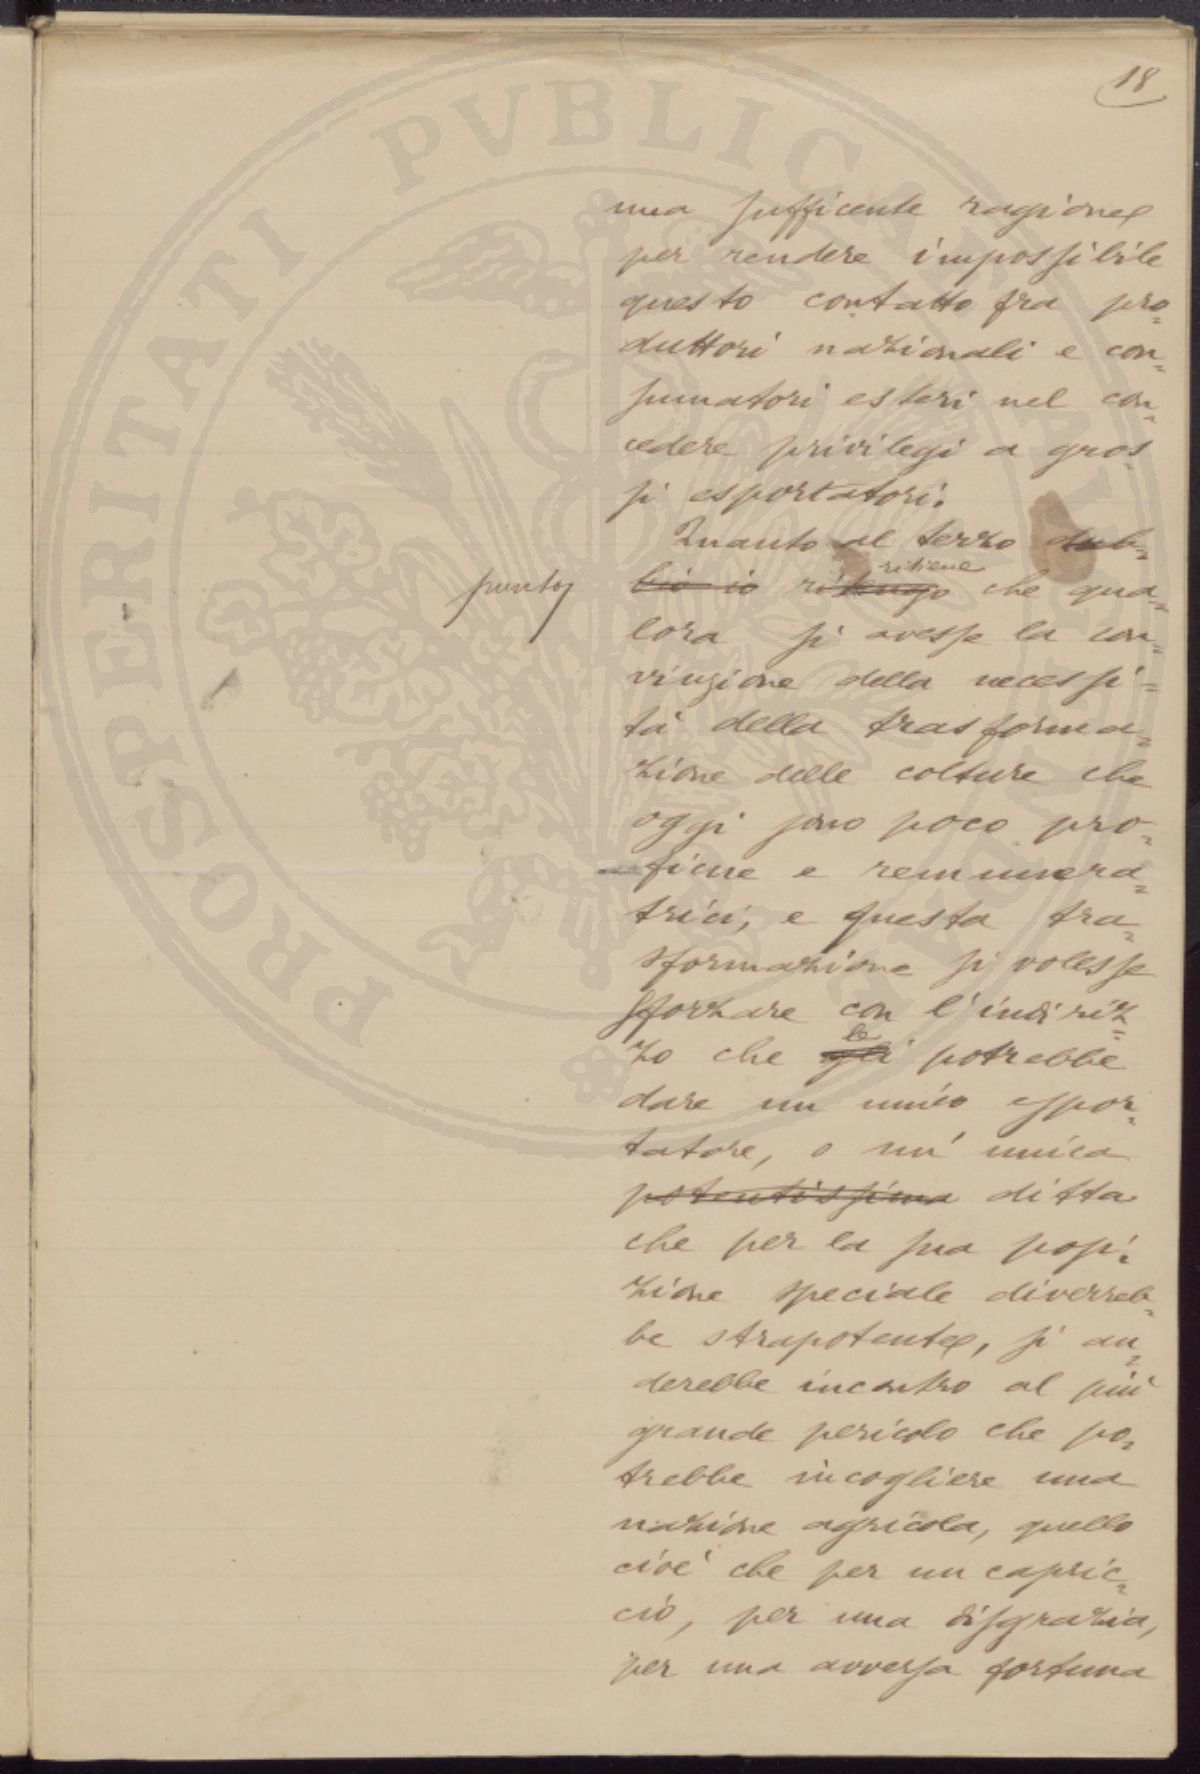 18
una sufficente ragione
per rendere impossibile
questo contatto fra pro=
duttori nazionali e con=
sumatori esteri nel con=
cedere privilegi a gros=
si esportatori.
Quanto al terzo dub=
punto
ritiene
bio io ritengo che qua=
lora si avesse la con=
vinzione della necessi=
tà della trasforma=
zione delle colture che
oggi sono poco pro=
ficue e remunera=
trici, e questa tra=
sformazione si volesse
sforzare con l'indiriz=
le
zo che gli potrebbe
dare un unico espor=
tatore, o un' unica
potentissima ditta
che per la sua posi=
zione speciale diverreb=
be strapotente, si an=
derebbe incontro al più
grande pericolo che po=
trebbe incogliere una
nazione agricola, quello
cioè che per un capric=
cio, per una disgrazia,
per una avversa fortuna
PROSPERITATI PVBLICAE